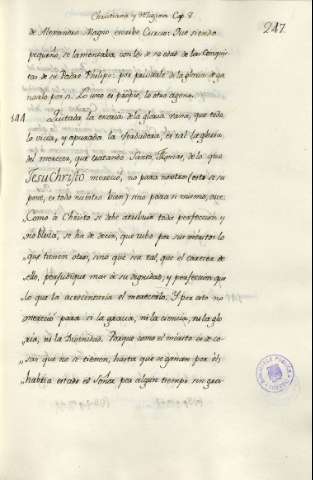 Christiana y Magna Cap. 8
247.
de Alexandro Magno escribe Curcio: Que siendo
pequeño, se lamentaba con los de su edad de las Conquistas
de su Padre Philipo: por privarle de la gloria de ga-
narlo por si. Lo uno es propio, lo otro ageno.
144 Quitada la escoria de la gloria vana, que todo
lo vicia, y apurada la verdadera, es tal la gloria
del merecer, que tratando Santo Thomas, de lo que
Jesu Christo mereció, no para nosotros (esto se su
pone, es todo nuestro bien) sino para si mismo, dice:
Como a Christo se debe atribuir toda perfección y
nobleza, se ha de decir, que tubo por sus meritos lo
que tienen otros, sino que sea tal, que el carecer de
ello, perjudique mas a su dignidad, y perfección que
lo que la acrecentaria el merecerlo. Y por esto no
mereció para si la gracia, ni la ciencia, ni la glo
ria, ni la Divinidad. Porque como el merito es de co-
sas que no se tienen, hasta que se ganan por él:
habria estado el Señor por algun tiempo sin gra-